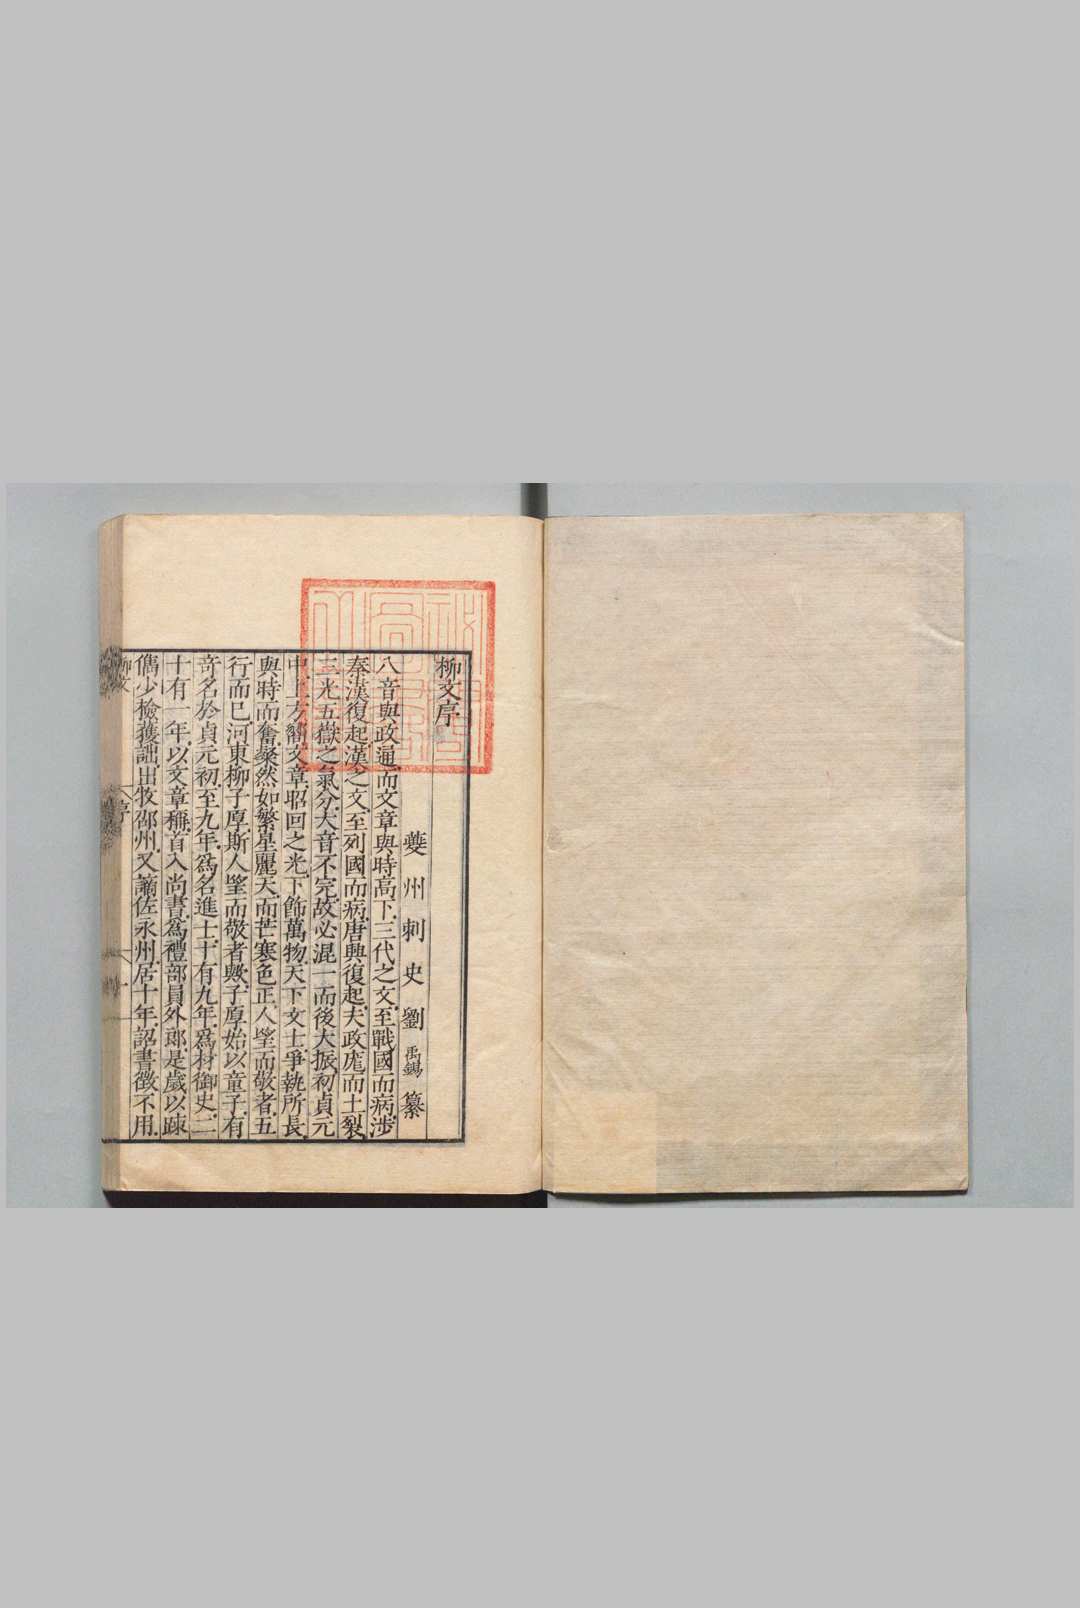 柳文序
夔州刺史劉禹錫纂
八音與政通而文章與時高下三代之文至戰國而病渉
秦漢復起漢之文至列國而病唐興復起夫政庬而土裂
三光五嶽之氣分大音不完故必混一而後大振初貞元
中上方嚮文章昭回之光下飾萬物天下文士爭執所長
與時而奮粲然如繁星麗天而芒寒色正人望而敬者五
行而已河東柳子厚斯人望而敬者歟子厚始以童子有
奇名於貞元初至九年爲名進士十有九年爲材御史二
十有一年以文章稱首入尚書爲禮部員外郎是歲以疎
儁少檢獲訕出牧邵州又謫佐永州居十年詔書徵不用
柳文
序
一